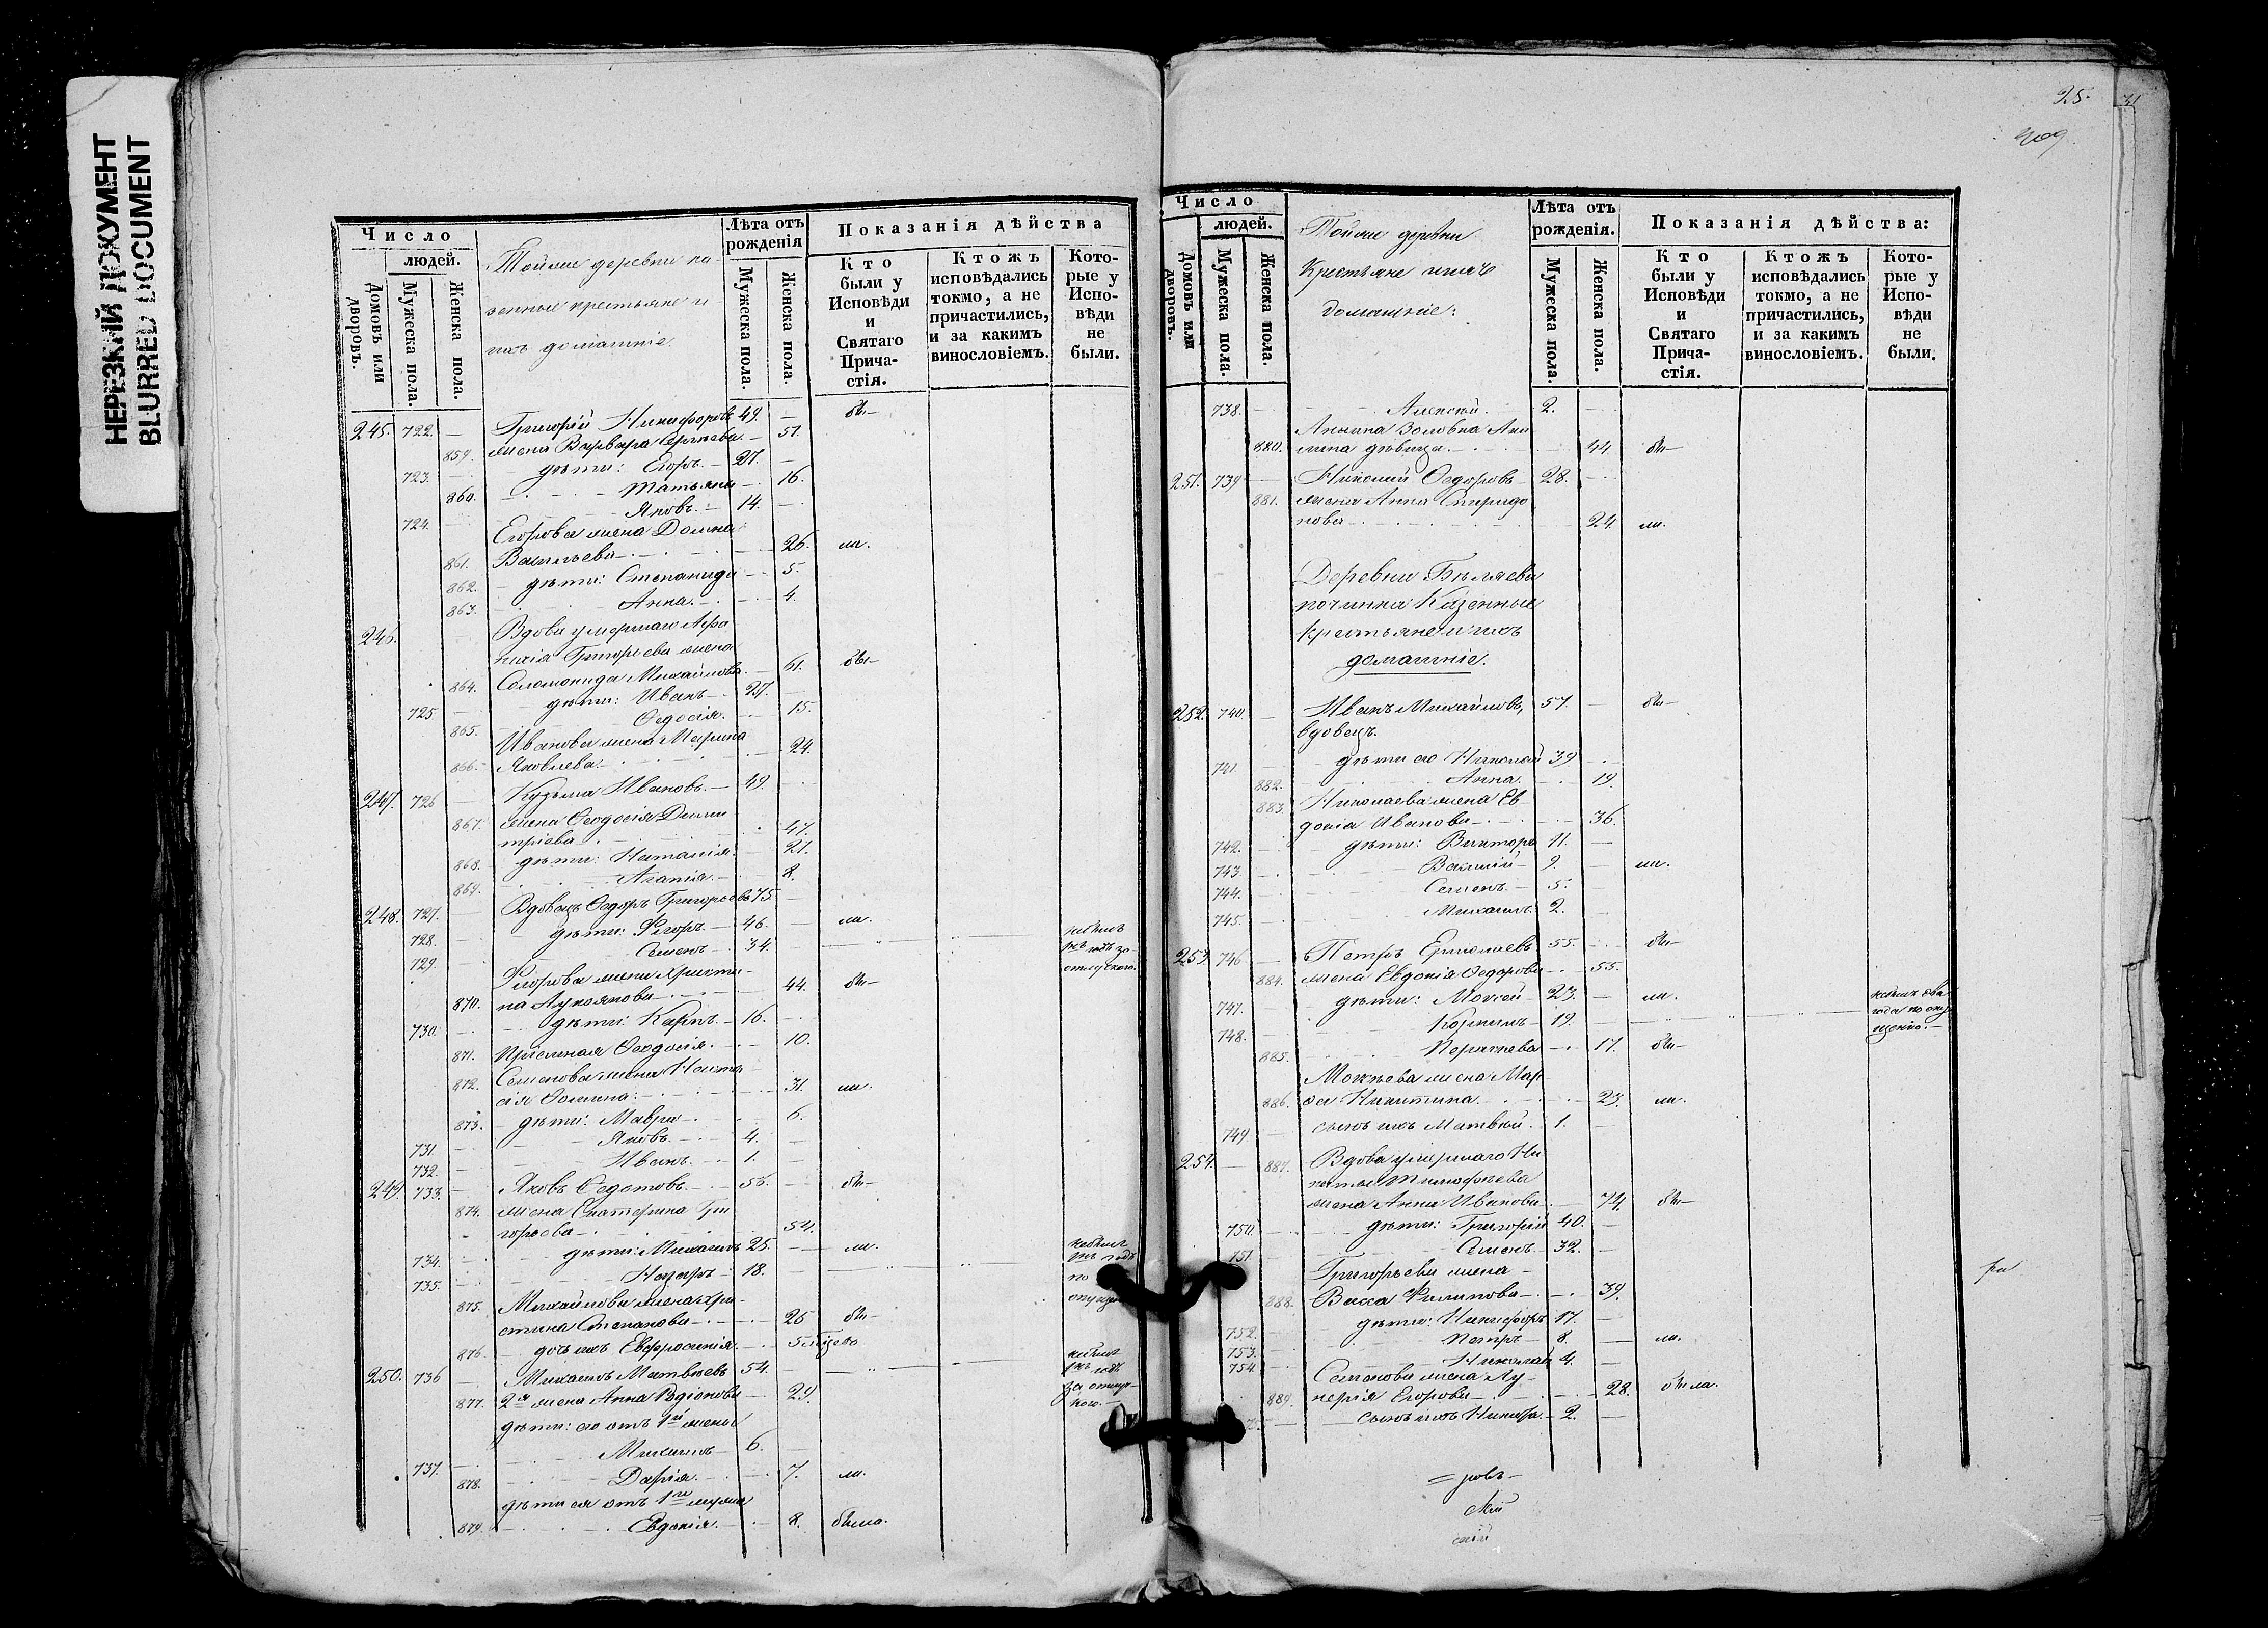 НЕРЕЗКИЙ ДОКУМЕНТ
BLURRED DOCUMENT
Число
людей.
Домовъ или дворовъ.
Мужеска пола.
Женска пола.
Тойже деревни ка-
зенные крестьяне и
ихъ домашніе.
Лѣта отъ рожденія
Мужеска пола.
Женска пола.
Показанія дѣйства
Кто были у Исповѣди и Святаго Прича-стія.
Ктожъ исповѣдались токмо, а не причастились, и за какимъ винословіемъ.
Кото-рые у Испо-вѣди не были.
245. 722. Григорій Никифоровъ 49. бы-
859. жена Варвара Сергѣева 51.
723. дѣти: Егоръ. 27.
860. Татьяна 16.
724. Яковъ. 14.
Егорова жена Домна
861. Васильева 26. ли.
862. дѣти: Степанида 5.
863. Анна. 4.
246. Вдова умершаго
Григорьева жена
864. Соломонида Михайлова. 61. бы-
725 дѣти: Иванъ 27.
865. Ѳедосія. 15.
Иванова жена Марина
866. Яковлева. 24.
247. 726 Кузьма Ивановъ. 49.
867. жена Ѳеодосія Дими
тріева 47.
868. дѣти: Наталія. 21.
869. Агапія. 8.
248. 727. Вдовецъ Ѳедоръ Григорьевъ 75
728. дѣти: Егоръ. 46. ли.
729. Семенъ 34. небылъ
Егорова жена Христи-
870. на Лукоянова 44. бы-
730. дѣти: Карпъ. 16.
871. Пріемная Ѳеодосія. 10.
872. Семенова жена Наста
сія Ѳомина: 31. ли.
873. дѣти: Мавра 6.
731. Яковъ. 4.
732. Иванъ. 1.
249. 733. Яковъ Ѳедотовъ. 55. бы-
874. жена Екатерина Гри
горьева 54.
734. дѣти: Михаилъ 25. ли.
735. Назаръ 18. небылъ
875. Михайлова жена Хри-
стина Степанова 25 бы-
876. дочь ихъ Евфросинія.
250. 736 Михаилъ Матвѣевъ 54. небылъ
877. 2я жена Анна Родіонова 29.
дѣти: его отъ 1й жены
737. Михаилъ 6.
878. Дарія. 7. ли.
дѣти ея отъ 1го мужа
879. Евдокія. 8. была.
25. 31
409.
Число
людей.
Домовъ или дворовъ.
Мужеска пола.
Женска пола.
Тойже деревни
Крестьяне ихъ
домашніе:
Лѣта отъ рожденія.
Мужеска пола.
Женска пола.
Показанія дѣйства:
Кто были у Исповѣди и Святаго Прича-стія.
Ктожъ исповѣдались токмо, а не причастились, и за какимъ винословіемъ.
Кото-рые у Испо-вѣди не были.
738. Алексѣй. 2.
Золовка Аку
880. лина дѣвица. 44. бы-
251. 739 Николай Ѳедоровъ 28.
881. жена Анна Спиридо
нова 24. ли.
Деревни Бѣляева
починка Казенные
крестьяне и ихъ
домашніе.
252. 740. Иванъ Михайловъ, 57. бы-
вдовецъ.
741 дѣти его Николай 39
882. Анна. 19.
883. Николаева жена Ев-
докія Иванова 36.
742. дѣти: Викторъ 11.
743. Василій 9 ли.
744. Семенъ. 5.
745. Михаилъ. 2.
253. 746 Петръ Ермолаевъ 55. бы-
884. жена Евдокія Ѳедорова 55.
747. дѣти: Моисей 23. ли.
748. Корнилъ 19. небылъ два
года по опу
щенію.
885. Перасковья 17. бы-
Моисѣева жена Мар
886. ѳа Никитина. 23. ли.
749 сынъ ихъ Матвѣй. 1.
254. 887. Вдова умершаго Ни
киты Тимофѣева
жена Анна Иванова 74. бы-
750. дѣти: Григорій 40.
751. Семенъ 32.
Григорьева жена
888. Васса Филипова 39.
752. дѣти: Никифоръ 17.
753. Петръ 8. ли.
754. Николай 4.
Семенова жена Лу-
889. керія Егорова 28. была.
сынъ ихъ 2.